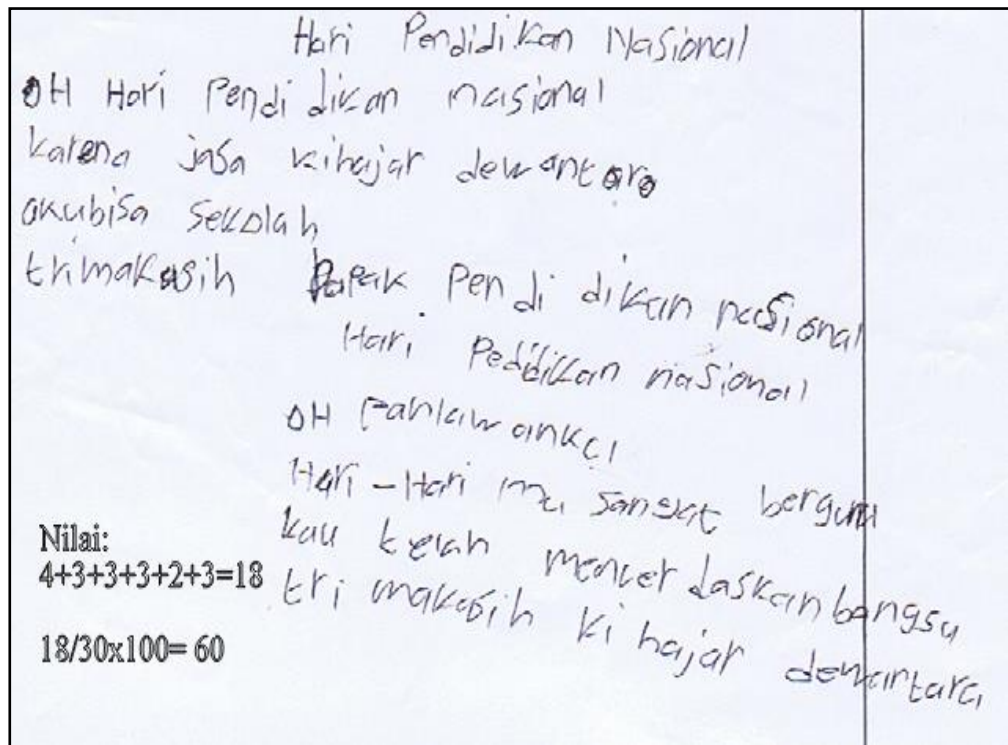 Hari Pendidikan Nasional
OH Hari Pendi dikan nasional
karena jasa kihajar dewantara
akubisa sekolah
trimakasih bapak Pen di dikan nasional
Hari Pedidikan nasional
OH Pahlawanku
Hari-Hari mu sangat berguna
kau telah mencer daskan bangsa
tri makasih ki hajar dewantara
Nilai:
4+3+3+3+2+3=18
18/30x100= 60